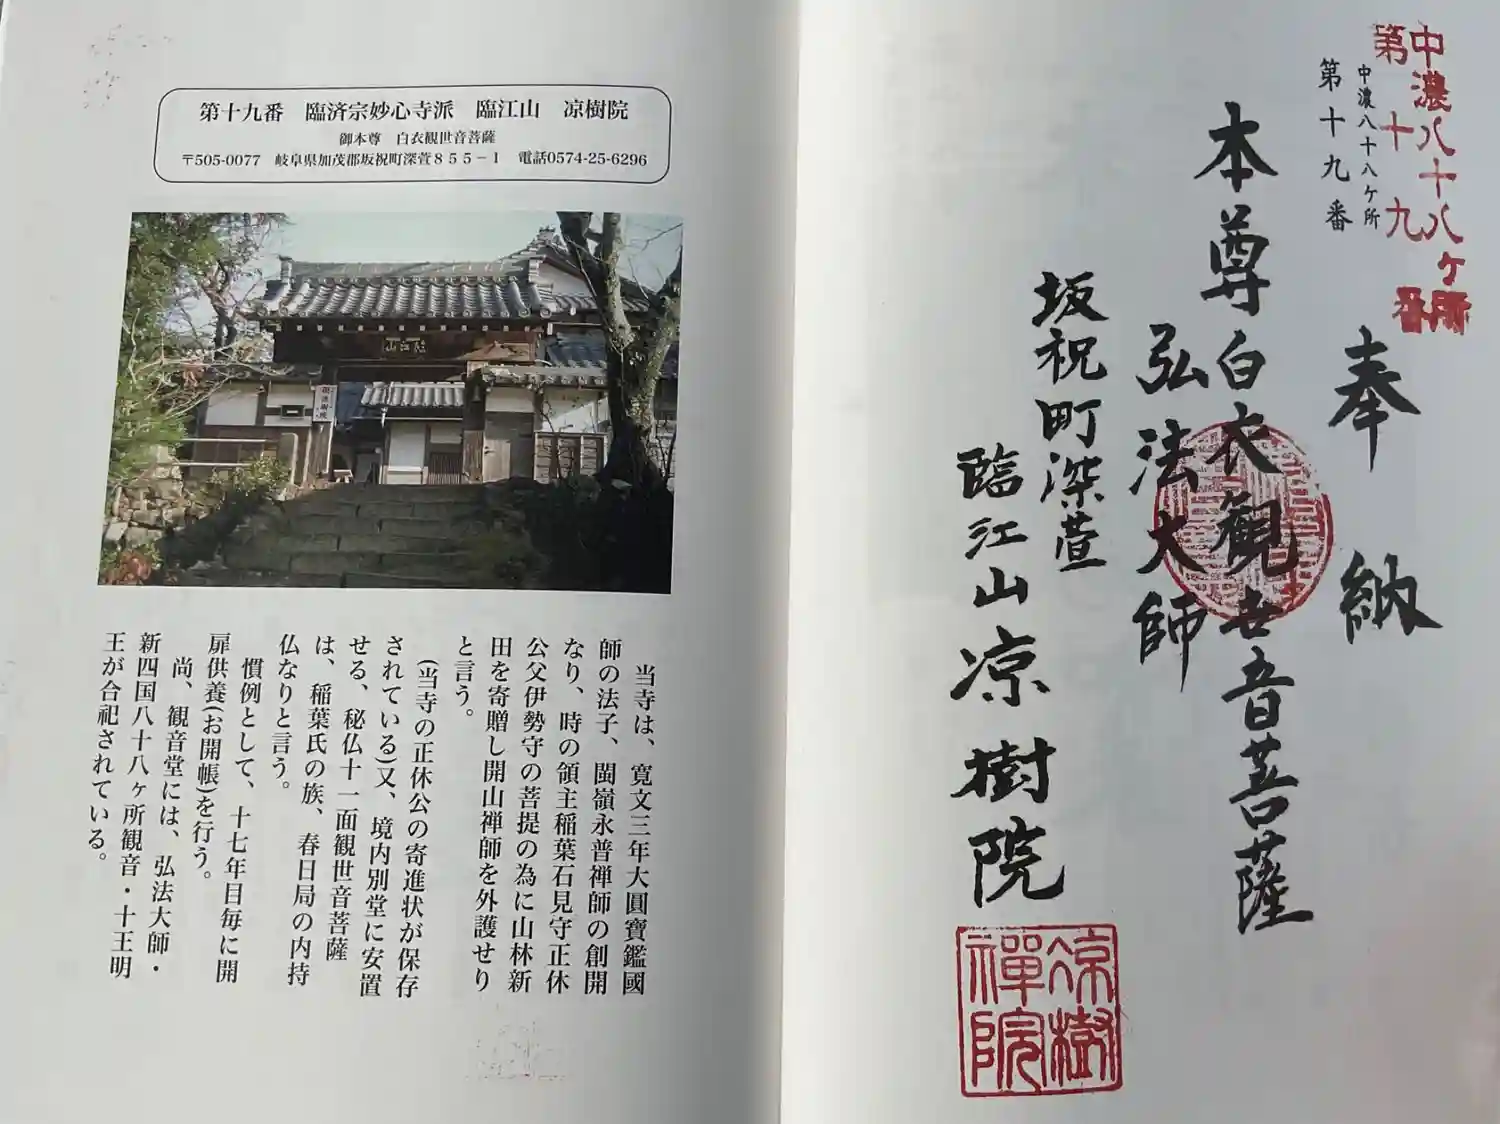 第十九番　臨済宗妙心寺派　臨江山　凉樹院
御本尊　白衣観世音菩薩
〒505-0077　岐阜県加茂郡坂祝町深萱８５５－１　電話0574-25-6296
臨江山
当寺は、寛文三年大圓寶鑑國
師の法子、閩嶺永普禅師の創開
なり、時の領主稲葉石見守正休
公父伊勢守の菩提の為に山林新
田を寄贈し開山禅師を外護せり
と言う。
(当寺の正休公の寄進状が保存
されている)又、境内別堂に安置
せる、秘仏十一面観世音菩薩
は、稲葉氏の族、春日局の内持
仏なりと言う。
慣例として、十七年目毎に開
扉供養(お開帳)を行う。
尚、観音堂には、弘法大師・
新四国八十八ヶ所観音・十王明
王が合祀されている。
中濃八十八ヶ所
第十九番
中濃八十八ヶ所
第十九番
奉納
本尊白衣觀世音菩薩
弘法大師
坂祝町深萱
臨江山凉樹院
凉樹
禪院